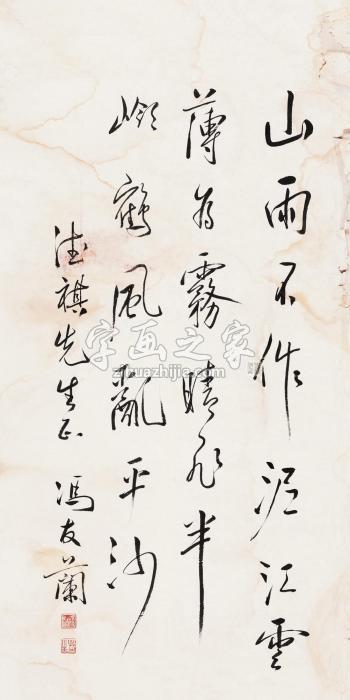 山雨不作泥江雲
薄為霧晴飛半
嶺鶴風亂平沙
德祺先生正 馮友蘭
字画之家
zihuazhijia.com